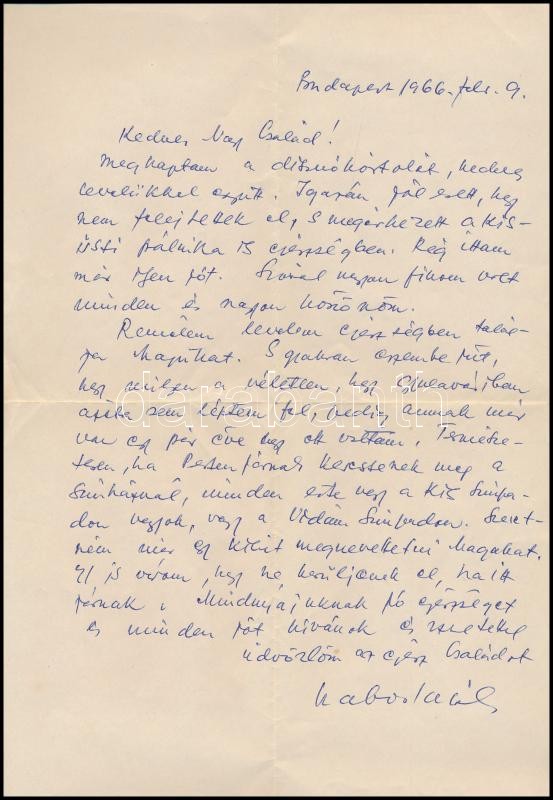 Budapest 1966. febr. 9.
Kedves Nagy Család!
Megkaptam a disznókóstolót, kedves
levelükkel együtt. Igazán jól esett, hogy
nem felejtettek el, s megérkezett a kis-
üsti pálinka is egészségben. Rég ittam
már ilyen jót. Szóval nagyon finom volt
minden és nagyon köszönöm.
Remélem levelem egészségben talál-
ja Magukat. S gyakran eszembe jut,
hogy milyen a véletlen, hogy
azóta sem léptem fel, pedig annak már
van egy pár éve hogy ott voltam. Természe-
tesen, ha Pesten járnak keressenek meg a
Színháznál, minden este vagy a Kis Szinpa-
don vagyok, vagy a Vidám Szinpadon. Szeret-
ném már egy kicsit megnevettetni Magukat.
El is várom, hogy ne kerüljenek el, ha itt
járnak. Mindnyájuknak jó egészséget
és minden jót kivánok és szeretettel
üdvözlöm az egész Családot
Kabos László
darabanth